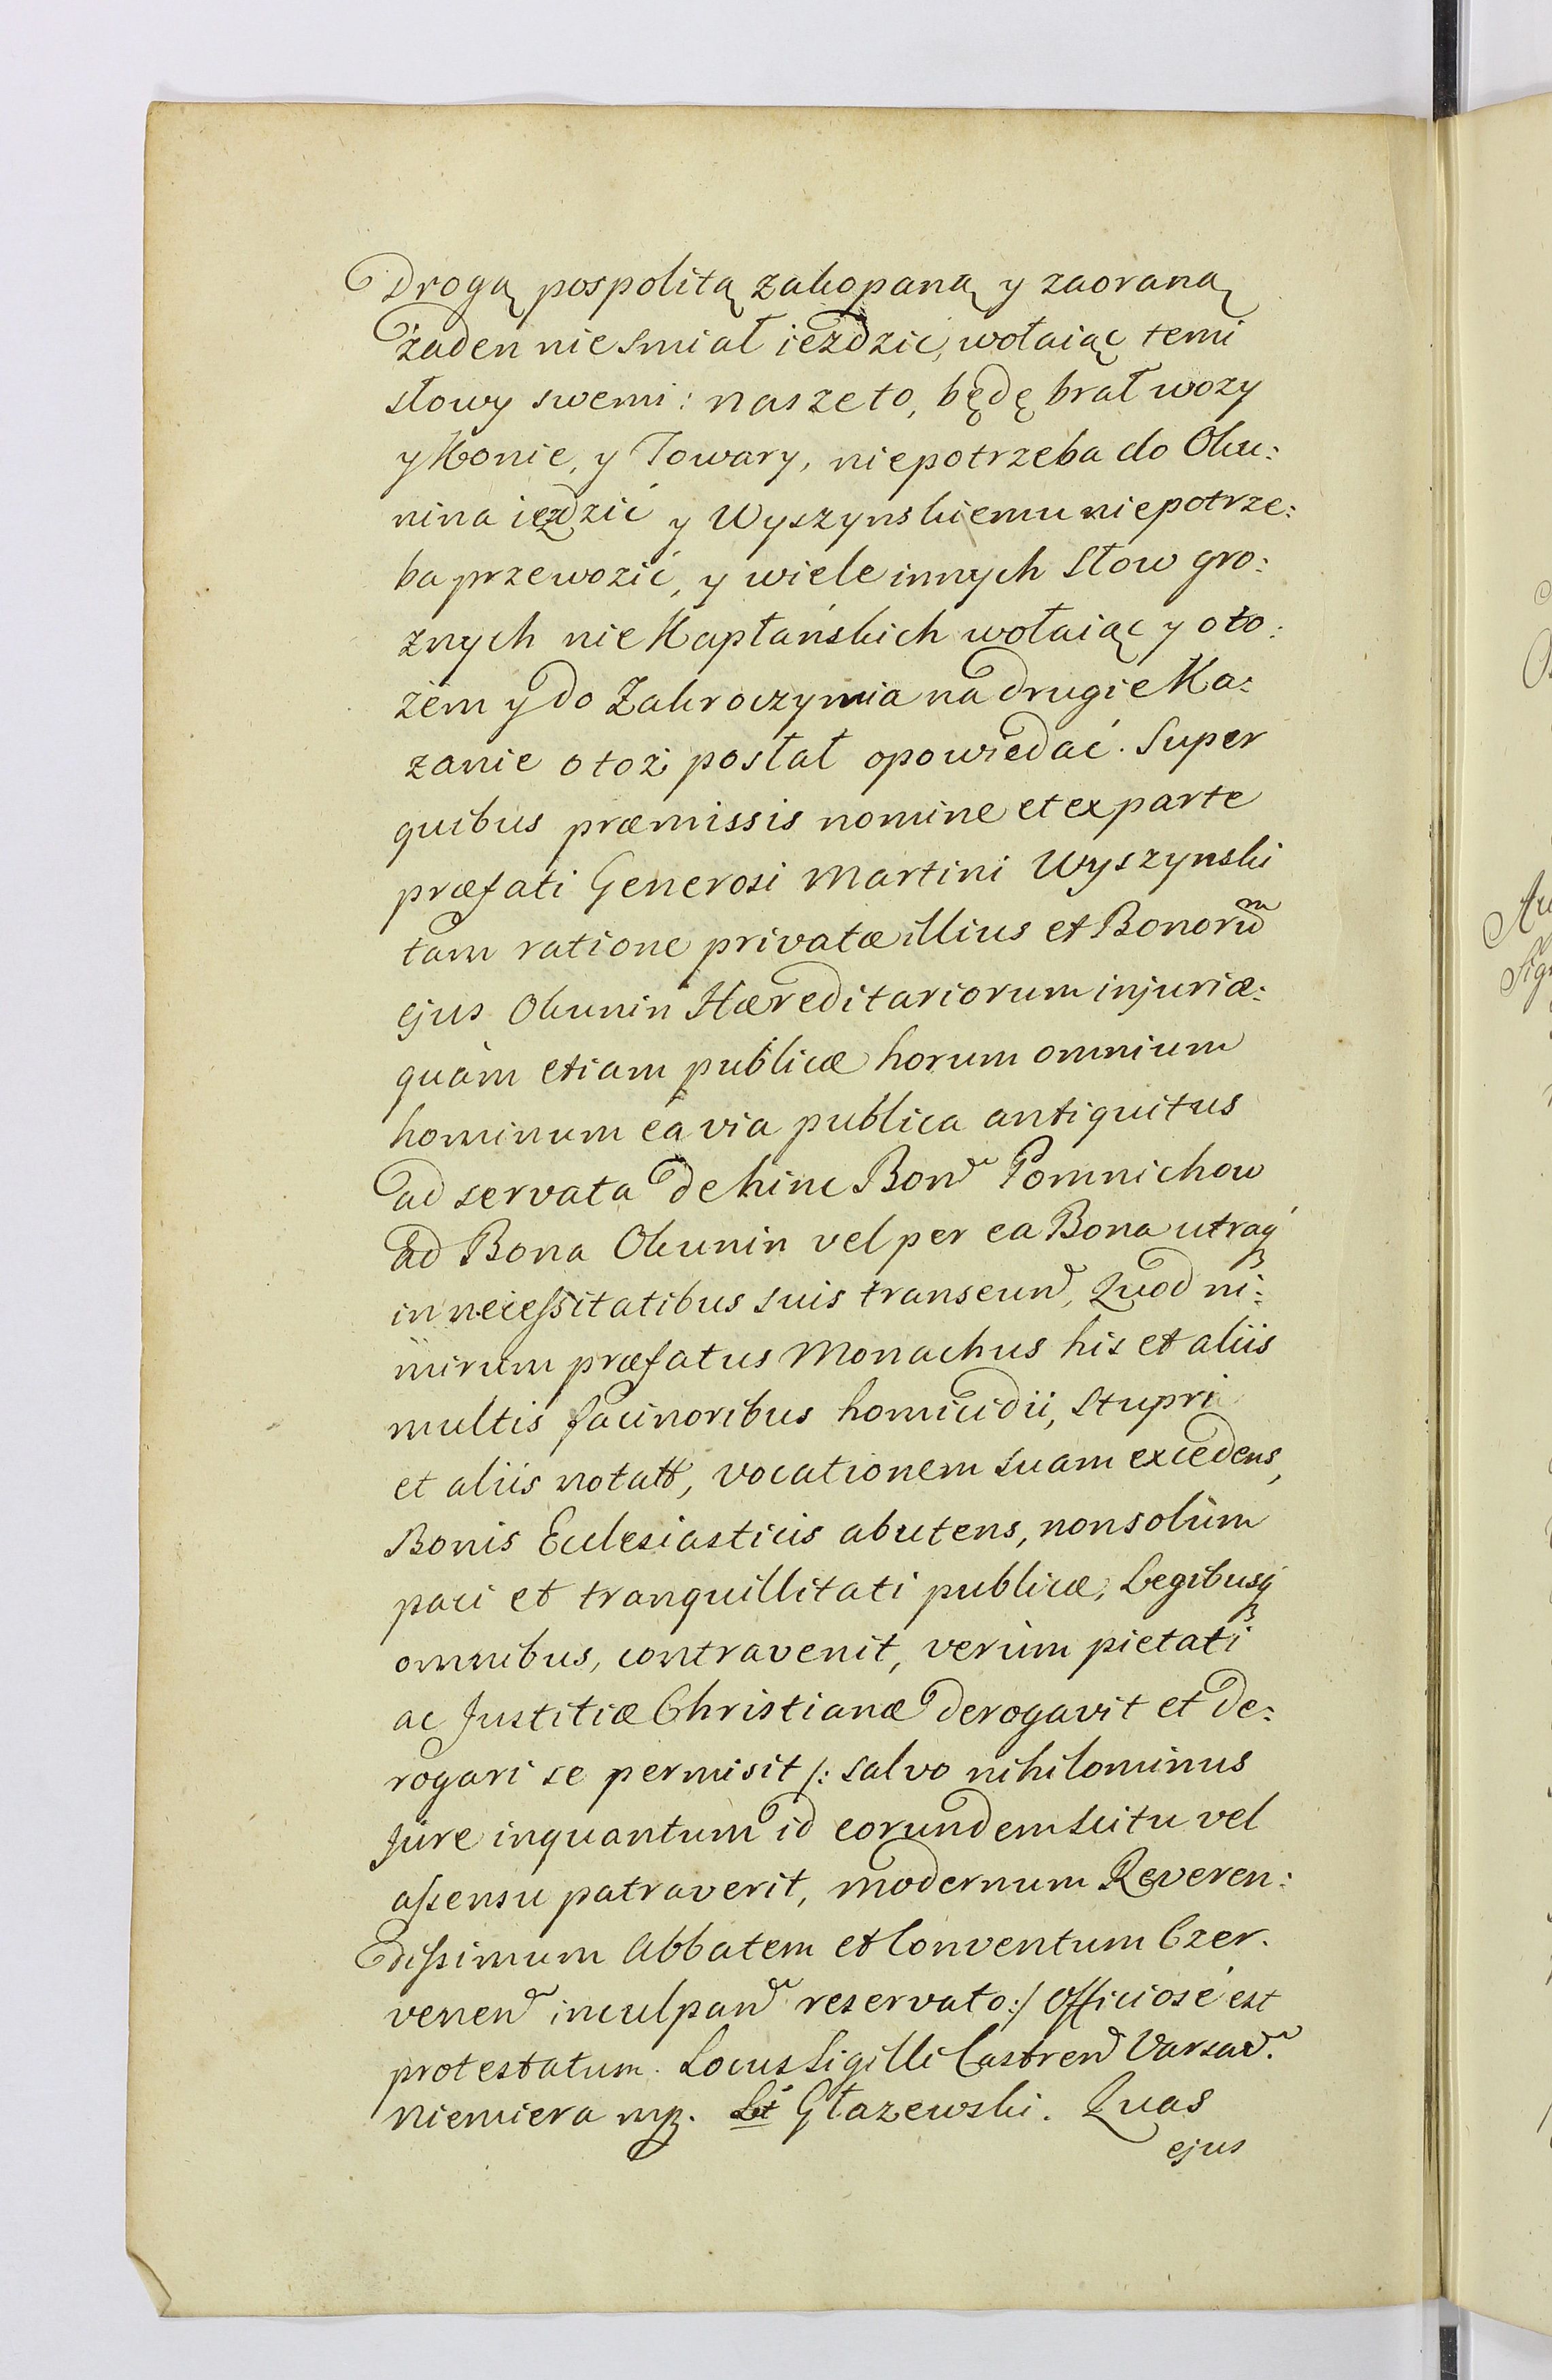 Drogą pospolitą zakopaną y zaoraną
żaden nie smiał ieździć, wołaiąc temi
słowy swemi: nasze to, będę brał wozy
y Konie, y Towary, niepotrzeba do Oku:
nina ieździć y Wyszynskiemu niepotrze:
ba przewozić, y wiele innych Słow gro:
znych nie Kapłańskich wołaiąc y oto:
żem y do Zakroczymia na drugie Ka:
zanie o toż posłał opowiedać. Super
quibus præmissis nomine et ex parte
præfati Generosi Martini Wyszynski
tam ratione privatæ illius et Bonorum
ejus Okunin Hæreditariorum injuriæ:
quàm etiam publicæ horum omnium
hominum eà via publica antiquitus
ad servata de hinc Bon̄ Pomnichow
ad Bona Okunin vel per ea Bona utraq́ꝫ
in necessitatibus suis transeun̄, Quod ni:
mirum præfatus Monachus his et aliis
multis facinoribus homicidii, Stupri
et aliis notatꝫ, vocationem suam excedens,
Bonis Ecclesiasticis abutens, non solùm
paci et tranquillitati publicæ, Legibusq́ꝫ
omnibus, contravenit, verùm pietati
ac Justitiæ Christianæ derogavit et de:
rogari se permisit /: salvo nihilominus
Jure inquantum id eorundem scitu vel
assensu patraverit, modernum Reveren:
dissimum Abbatem et Conventum Czer.
venen̄ inculpan̄ reservato :/ Officiosè est
protestatum. Locus Sigilli Castren̄ Varsav̄.
Niemiera mp. Głazewski. Quas
ejus